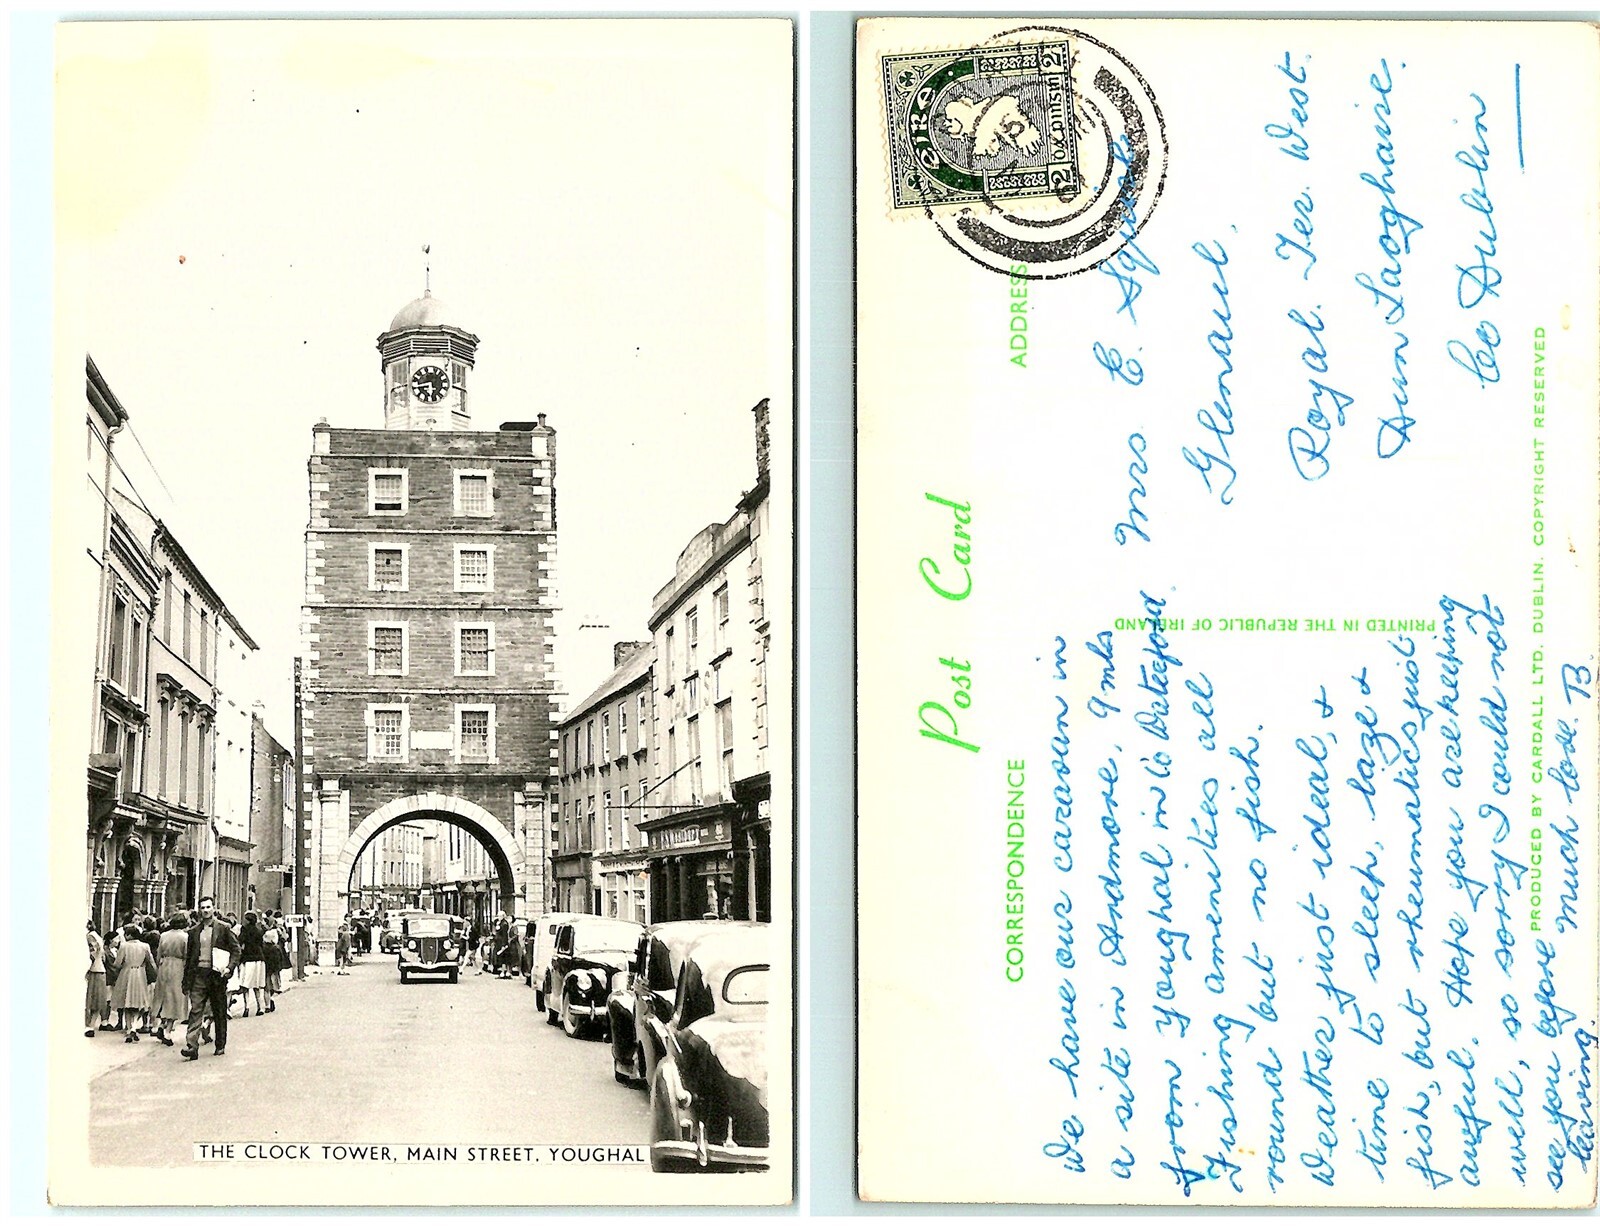 THE CLOCK TOWER, MAIN STREET, YOUGHAL
Post Card
CORRESPONDENCE
ADDRESS
éire
2 DÁ PINSIN 2
15
We have our caravan in
a site in Ardmore, 9 mls
from Youghal in Co Waterford.
Fishing amenities all
round but no fish.
Weather just ideal, &
time to sleep, laze &
fish, but rheumatics just
awful. Hope you are keeping
well, so sorry I could not
see you before
leaving.
Much love. B
Mrs. E. Squirks
Glenaul,
Royal. Ter. West.
Dun Laoghaire.
Co Dublin
PRINTED IN THE REPUBLIC OF IRELAND
PRODUCED BY CARDALL LTD. DUBLIN. COPYRIGHT RESERVED